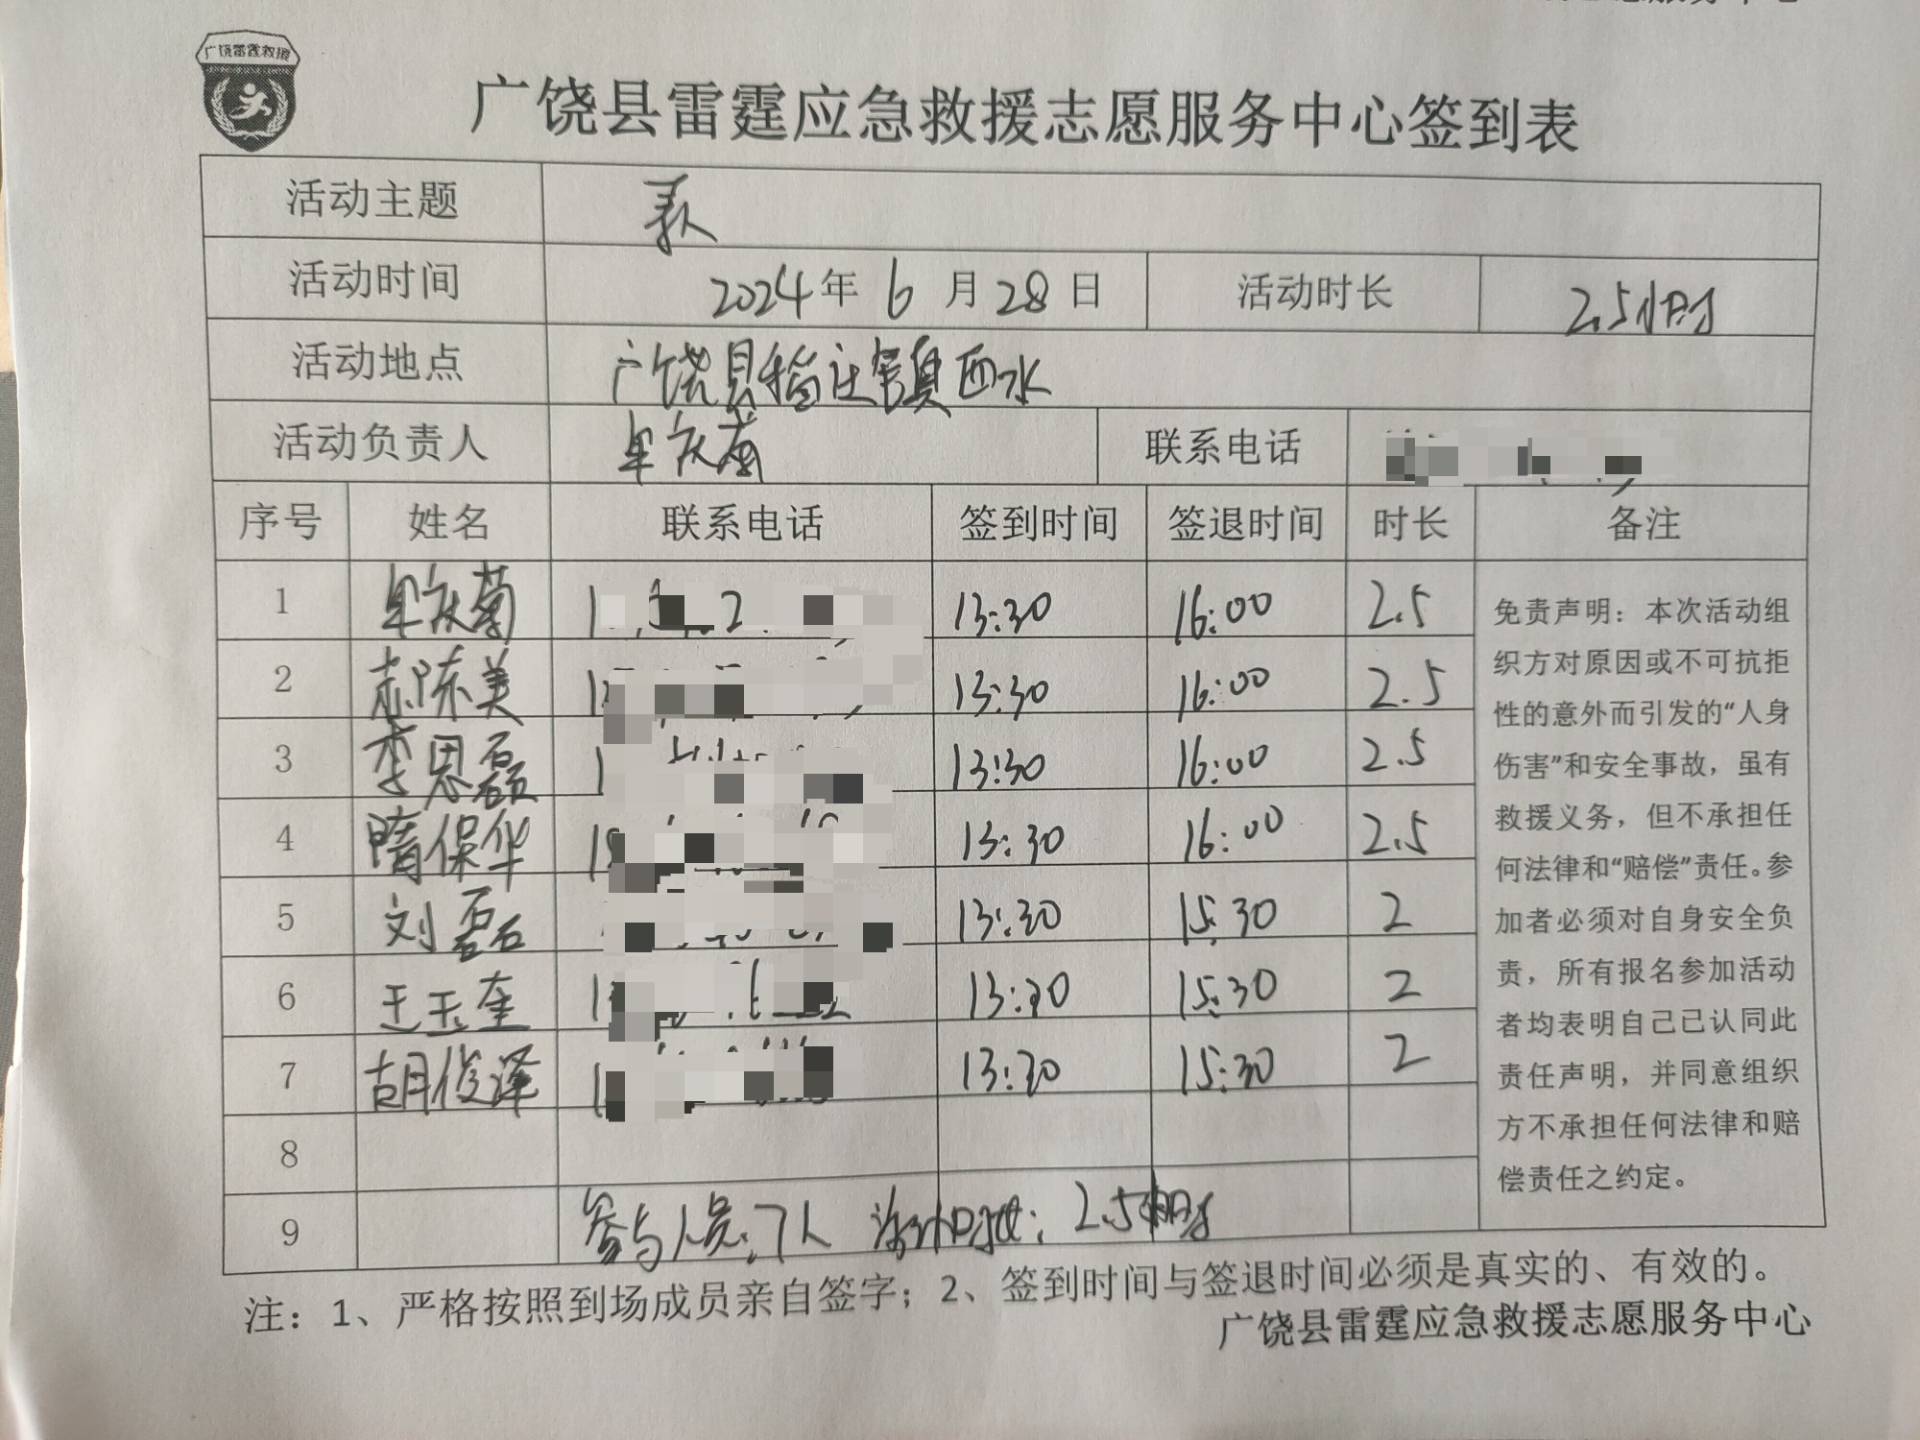 广饶雷霆救援
广饶县雷霆应急救援志愿服务中心签到表
活动主题
活动时间 2024年6月28日 活动时长 2.5小时
活动地点 广饶县稻庄镇西水
活动负责人 联系电话
序号 姓名 联系电话 签到时间 签退时间 时长 备注
1 13:30 16:00 2.5
2 郝陈美 13:30 16:00 2.5
3 李恩磊 13:30 16:00 2.5
4 隋保华 13:30 16:00 2.5
5 刘磊 13:30 15:30 2
6 王玉奎 13:30 15:30 2
7 胡俊泽 13:30 15:30 2
8
9 参与人员:7人 2.5小时
免责声明：本次活动组
织方对原因或不可抗拒
性的意外而引发的“人身
伤害”和安全事故，虽有
救援义务，但不承担任
何法律和“赔偿”责任。参
加者必须对自身安全负
责，所有报名参加活动
者均表明自己已认同此
责任声明，并同意组织
方不承担任何法律和赔
偿责任之约定。
注：1、严格按照到场成员亲自签字；2、签到时间与签退时间必须是真实的、有效的。
广饶县雷霆应急救援志愿服务中心